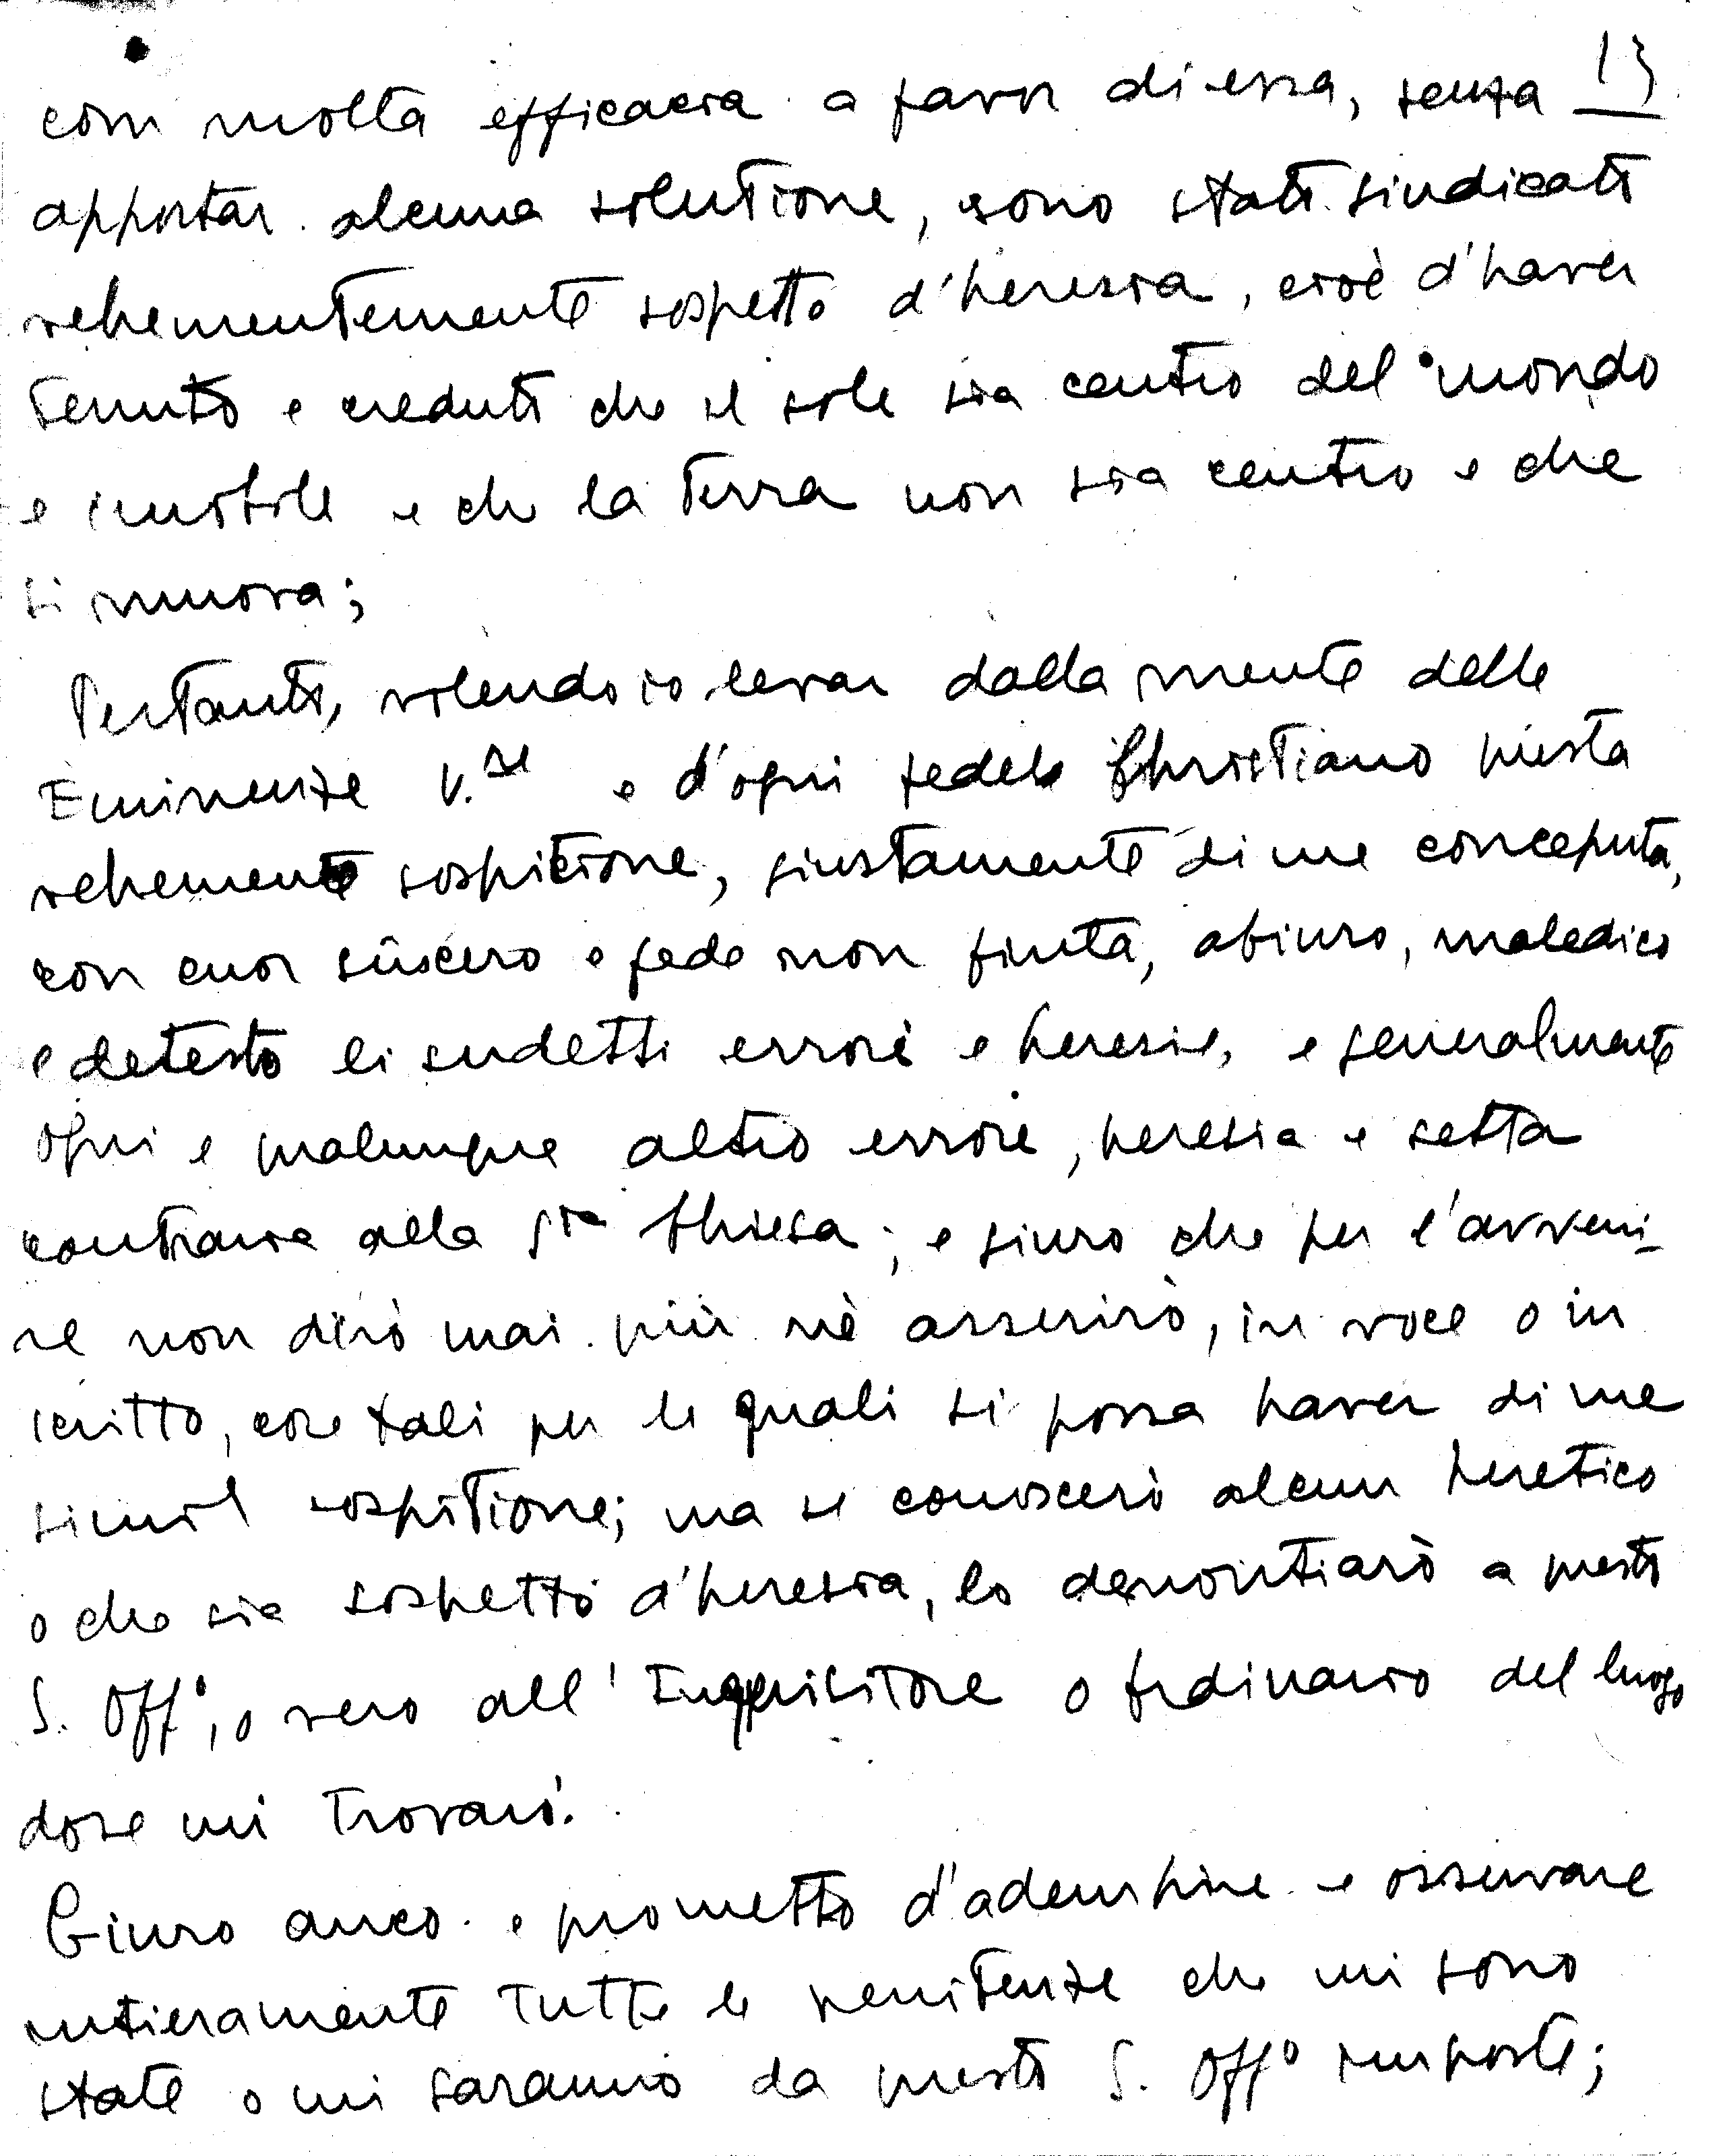 con molta efficacia a favor di essa, senza 13
apportar alcuna solutione, sono stato giudicato
vehementemente sospetto d'heresia, cioè d'haver
tenuto e creduto che il sole sia centro del mondo
e imobile e che la terra non sia centro e che
si muova;
Pertanto, volendo io levar dalla mente delle
Eminenze V.re e d'ogni fedel Christiano questa
vehemente sospitione, giustamente di me conceputa,
con cuor sincero e fede non finta, abiuro, maledico
e detesto li sudetti errori e heresie, e generalmente
ogni e qualunque altro errore, heresia e setta
contraria alla S.ta Chiesa; e giuro che per l'avveni-
re non dirò mai più nè asserirò, in voce o in
scritto, cose tali per le quali si possa haver di me
simil sospitione; ma se conoscerò alcun heretico
o che sia sospetto d'heresia, lo denontiarò a questo
S. Off°, o vero all'Inquisitore o Ordinario del luogo
dove mi trovarò.
Giuro anco e prometto d'adempire e osservare
intieramente tutte le penitenze che mi sono
state o mi saranno da questo S. Off° imposte;